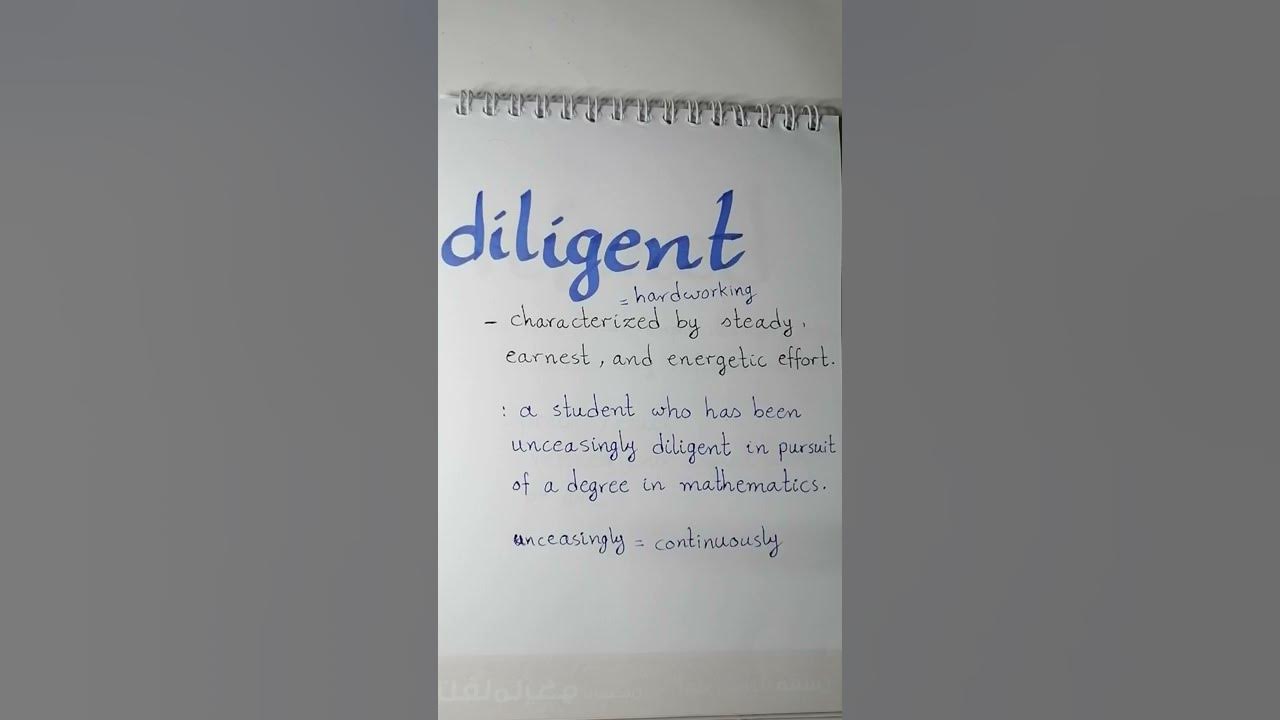 diligent
= hardworking
- characterized by steady,
earnest, and energetic effort.
: a student who has been
unceasingly diligent in pursuit
of a degree in mathematics.
unceasingly = continuously